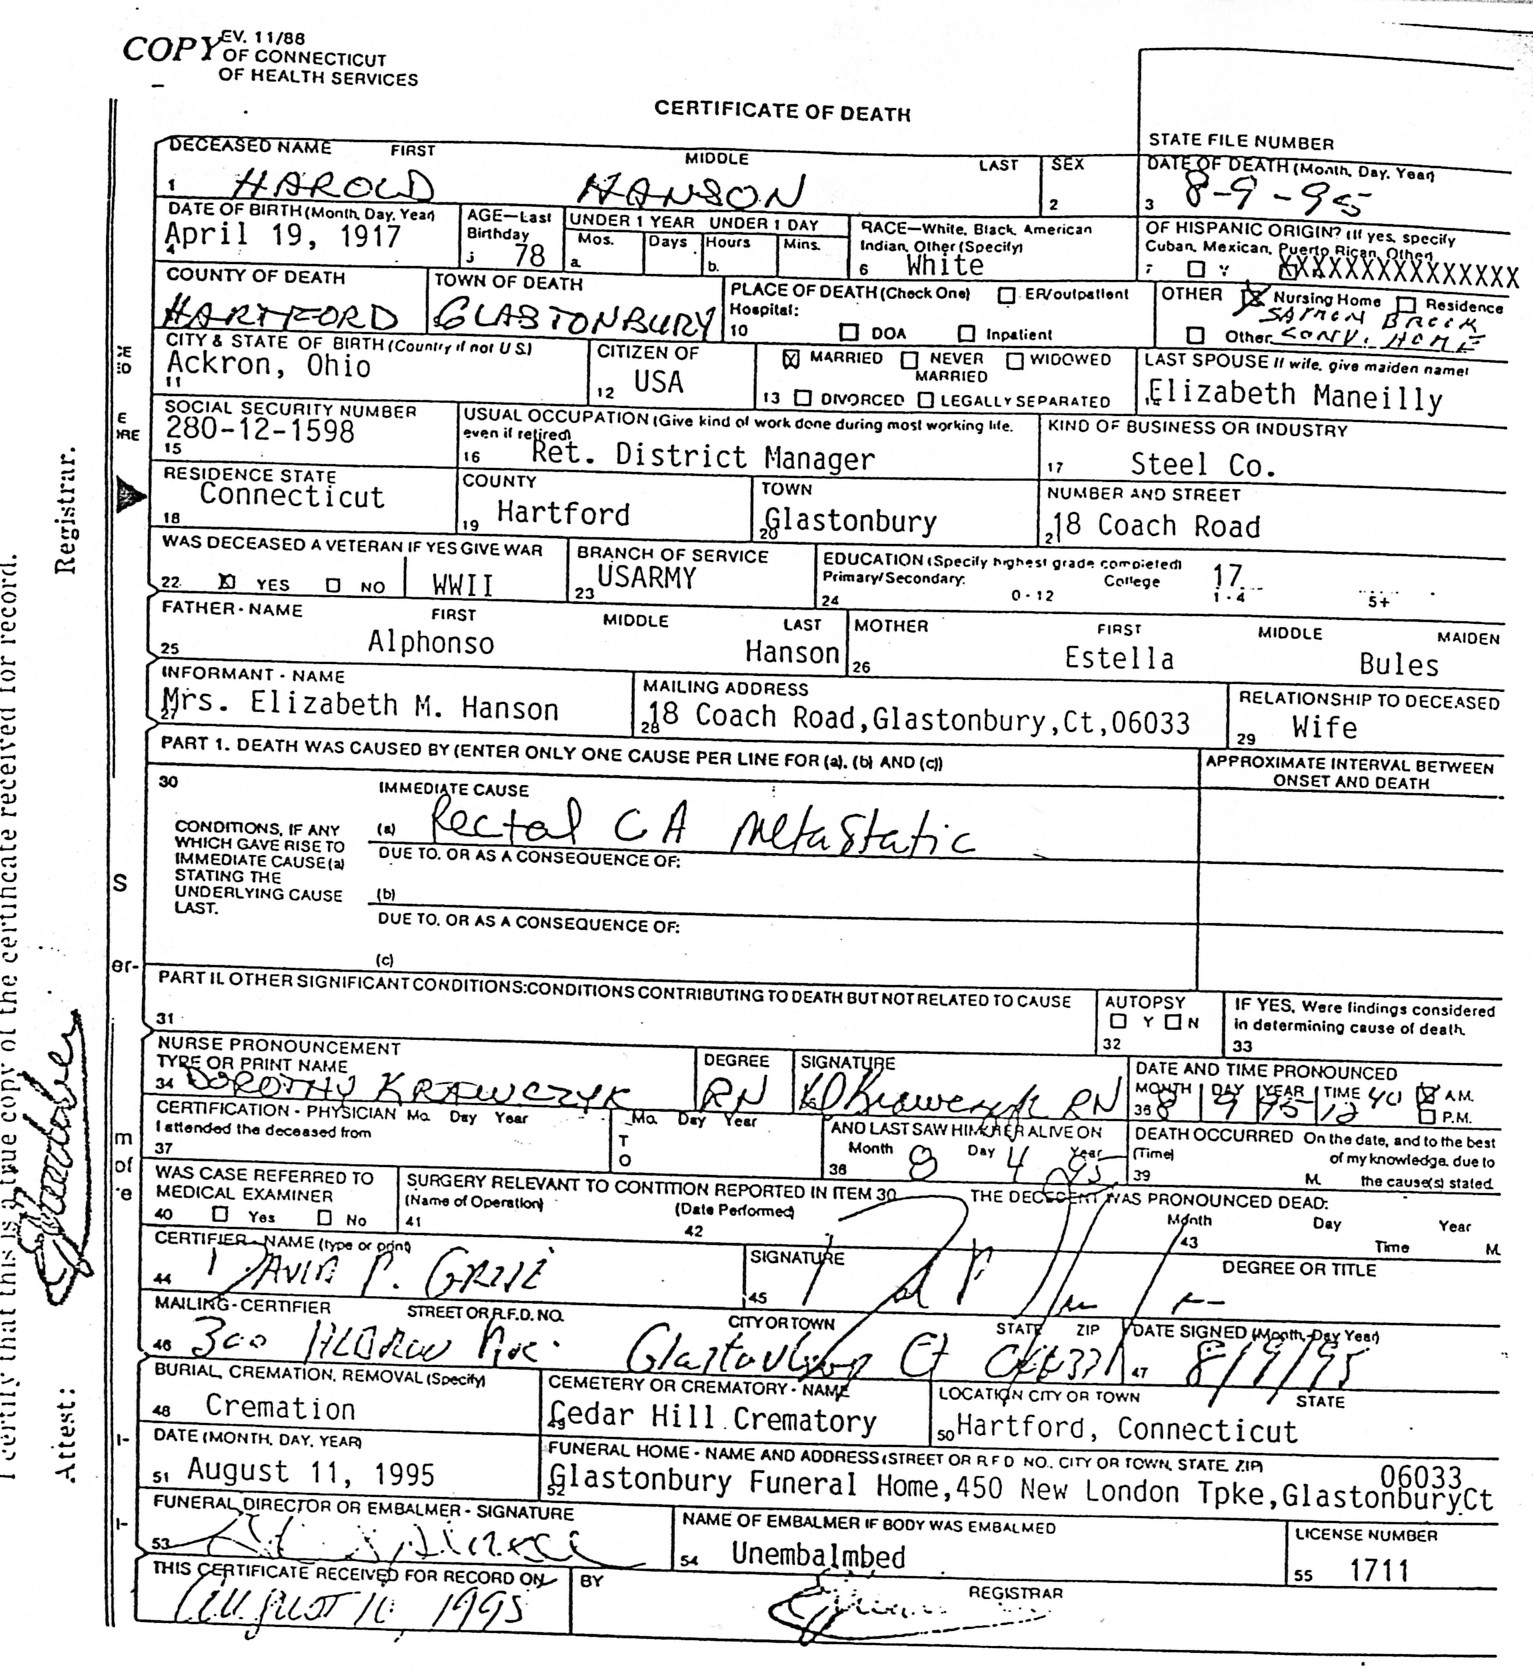 COPY EV. 11/88
OF CONNECTICUT
OF HEALTH SERVICES
CERTIFICATE OF DEATH
STATE FILE NUMBER
DECEASED NAME FIRST MIDDLE LAST SEX DATE OF DEATH (Month, Day, Year)
1 HAROLD HANSON 2 3 8-9-95
DATE OF BIRTH (Month, Day, Year) AGE—Last Birthday UNDER 1 YEAR UNDER 1 DAY RACE—White, Black, American Indian, Other (Specify) OF HISPANIC ORIGIN? (If yes, specify Cuban, Mexican, Puerto Rican, Other)
Mos. Days Hours Mins.
4 April 19, 1917 78 a. b. 6 White 7 Y XXXXXXXXXXXXXXX
COUNTY OF DEATH TOWN OF DEATH PLACE OF DEATH (Check One) ER/outpatient OTHER X Nursing Home Residence
Hospital:
HARTFORD GLASTONBURY 10 DOA Inpatient Other CONV. HOME
CITY & STATE OF BIRTH (Country if not U S.) CITIZEN OF X MARRIED NEVER MARRIED WIDOWED LAST SPOUSE If wife, give maiden name)
11 Ackron, Ohio 12 USA 13 DIVORCED LEGALLY SEPARATED Elizabeth Maneilly
SOCIAL SECURITY NUMBER USUAL OCCUPATION (Give kind of work done during most working life, even if retired) KIND OF BUSINESS OR INDUSTRY
15 280-12-1598 16 Ret. District Manager 17 Steel Co.
RESIDENCE STATE COUNTY TOWN NUMBER AND STREET
18 Connecticut 19 Hartford 20 Glastonbury 18 Coach Road
WAS DECEASED A VETERAN IF YES GIVE WAR BRANCH OF SERVICE EDUCATION (Specify highest grade completed)
Primary/Secondary: College 17
22 X YES NO WWII 23 USARMY 24 0-12 1-4 5+
FATHER - NAME FIRST MIDDLE LAST MOTHER FIRST MIDDLE MAIDEN
25 Alphonso Hanson 26 Estella Bules
INFORMANT - NAME MAILING ADDRESS RELATIONSHIP TO DECEASED
27 Mrs. Elizabeth M. Hanson 28 18 Coach Road,Glastonbury,Ct,06033 29 Wife
PART 1. DEATH WAS CAUSED BY (ENTER ONLY ONE CAUSE PER LINE FOR (a), (b) AND (c)) APPROXIMATE INTERVAL BETWEEN ONSET AND DEATH
30 IMMEDIATE CAUSE
CONDITIONS, IF ANY WHICH GAVE RISE TO IMMEDIATE CAUSE (a) STATING THE UNDERLYING CAUSE LAST.
(a) Rectal CA metastatic
DUE TO, OR AS A CONSEQUENCE OF:
(b)
DUE TO, OR AS A CONSEQUENCE OF:
(c)
PART II. OTHER SIGNIFICANT CONDITIONS:CONDITIONS CONTRIBUTING TO DEATH BUT NOT RELATED TO CAUSE AUTOPSY IF YES, Were findings considered in determining cause of death.
31 32 Y N 33
NURSE PRONOUNCEMENT
TYPE OR PRINT NAME DEGREE SIGNATURE DATE AND TIME PRONOUNCED
MONTH DAY YEAR TIME
34 DOROTHY KRAWCZYK RN DKrawczyk RN 36 8 9 95 12 40 X A.M. P.M.
CERTIFICATION - PHYSICIAN Mo. Day Year Mo. Day Year AND LAST SAW HIM/HER ALIVE ON DEATH OCCURRED On the date, and to the best of my knowledge, due to the cause(s) stated.
I attended the deceased from TO Month Day Year (Time)
37 38 8 4 95 39 M.
WAS CASE REFERRED TO MEDICAL EXAMINER SURGERY RELEVANT TO CONTITION REPORTED IN ITEM 30 THE DECEDENT WAS PRONOUNCED DEAD:
(Name of Operation) (Date Performed) Month Day Year
40 Yes No 41 42 43 Time M.
CERTIFIER - NAME (type or print) SIGNATURE DEGREE OR TITLE
44 DAVID P. 45
MAILING - CERTIFIER STREET OR R.F.D. NO. CITY OR TOWN STATE ZIP DATE SIGNED (Month, Day Year)
46 300 Glastonbury Ct 47 8/9/95
BURIAL, CREMATION, REMOVAL (Specify) CEMETERY OR CREMATORY - NAME LOCATION CITY OR TOWN STATE
48 Cremation 49 Cedar Hill Crematory 50 Hartford, Connecticut
DATE (MONTH, DAY, YEAR) FUNERAL HOME - NAME AND ADDRESS (STREET OR R F D NO. CITY OR TOWN, STATE, ZIP)
06033
51 August 11, 1995 52 Glastonbury Funeral Home,450 New London Tpke,GlastonburyCt
FUNERAL DIRECTOR OR EMBALMER - SIGNATURE NAME OF EMBALMER IF BODY WAS EMBALMED LICENSE NUMBER
53 54 Unembalmbed 55 1711
THIS CERTIFICATE RECEIVED FOR RECORD ON BY REGISTRAR
August 11, 1995
I certify that this is a true copy of the certificate received for record.
Attest: Registrar.